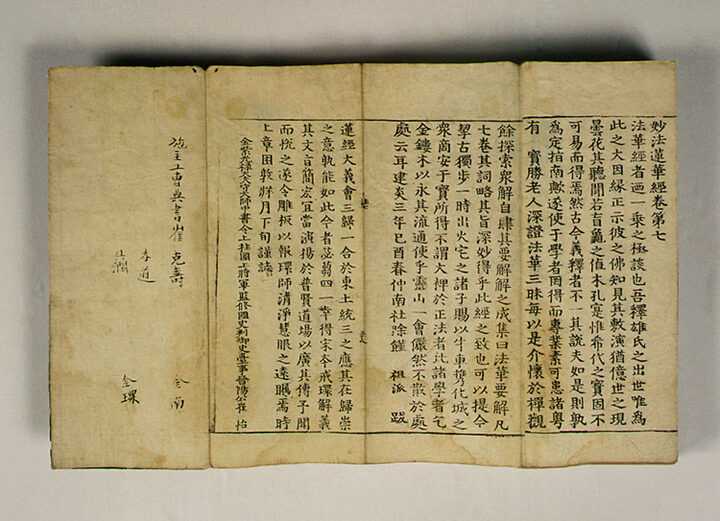 妙法蓮華經卷第七
法華經者画一乗之極談也吾釋雄氏之出世唯為
此之大因緣正示彼之佛知見其敷演猶億世之現
曇花其聽聞若盲龜之值木孔是惟希代之寶固不
可易而得焉然古今義釋者不一其說夫如是則孰
為定指南歟遂使于學者罔得而專業素可患諸粵
有 寶勝老人深證法華三昧每以是介懷於禪觀
餘探索衆解自肆其要解解之成集曰法華要解凡
七卷其詞略其旨深妙得乎此經之致也可以提今
挈古獨步一時出火宅之諸子賜以牛車携化城之
衆商安于寶所得不謂大押於正法者比諸學者乞
金鏤木以永其流通使乎靈山一會儼然不散於處
處云耳建炎三年己酉春仲南社除饉 祖派 跋
蓮經大義會三歸一合於東上統三之應其在歸崇
之意孰能如此今者苾蒭四一幸得宋本戒環解義
其文言簡宏宜當演揚於普賢道場以廣其傳予聞
而悅之遂令雕板以報環師清淨慧眼之遠矚焉時
上章困敦牂月下旬謹誌
施主工曹典書崔 克壽
李道
金南
金環